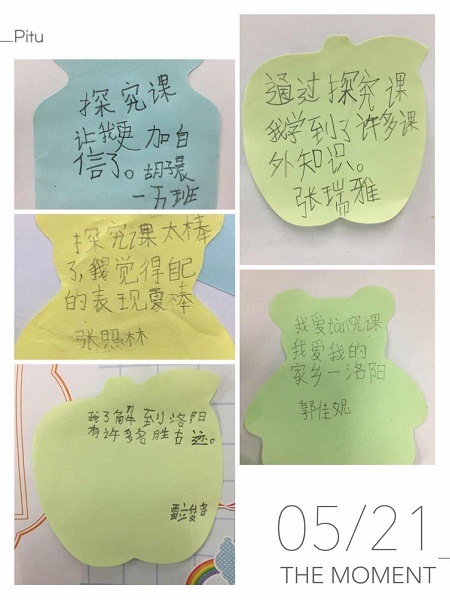 Pitu
探究课
让我更加自
信了。胡子晨
一五班
通过探究课
我学到了许多课
外知识。
张瑞雅
探究课太棒
了,我觉得自己
的表现最棒
张照林
我爱tàn究课
我爱我的
家乡一洛阳
郭佳妮
我了解到洛阳
有许多名胜古迹。
05/21
THE MOMENT